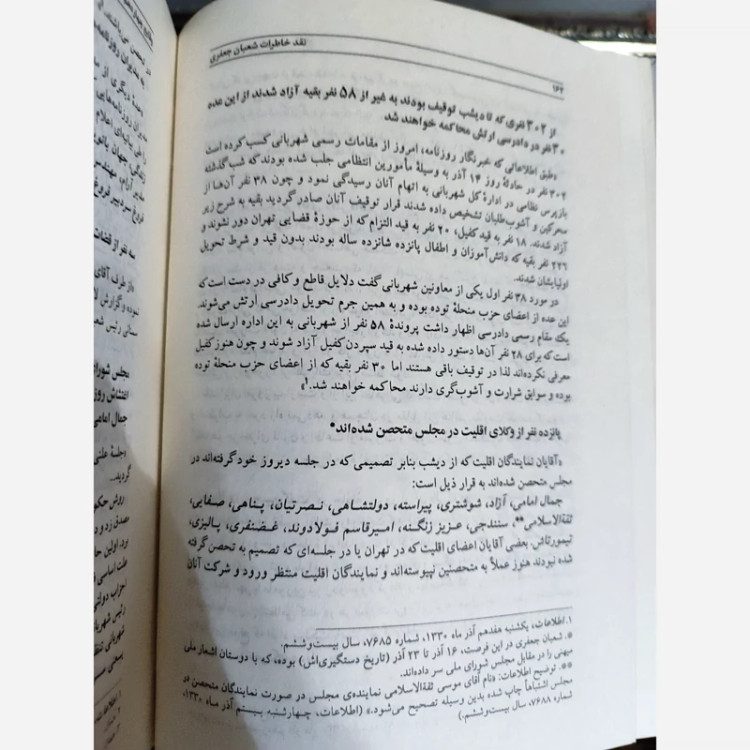 نقد خاطرات شعبان جعفری
۱۶۲
از ۳۰۲ نفری که تا دیشب توقیف بودند به غیر از ۵۸ نفر بقیه آزاد شدند از این عده
۳۰ نفر در دادرسی ارتش محاکمه خواهند شد
«طبق اطلاعاتی که خبرنگار روزنامه، امروز از مقامات رسمی شهربانی کسب کرده است
۳۰۲ نفر در حادثهٔ روز ۱۴ آذر به وسیلهٔ مأمورین انتظامی جلب شده بودند که شب گذشته
بازپرس نظامی در ادارهٔ کل شهربانی به اتهام آنان رسیدگی نمود و چون ۳۸ نفر آن‌ها از
محرکین و آشوب‌طلبان تشخیص داده شدند قرار توقیف آنان صادر گردید بقیه به شرح زیر
آزاد شدند. ۱۸ نفر به قید کفیل، ۲۰ نفر به قید التزام که از حوزهٔ قضایی تهران دور نشوند و
۲۲۶ نفر بقیه که دانش‌آموزان و اطفال پانزده شانزده ساله بودند بدون قید و شرط تحویل
اولیایشان شدند.
در مورد ۳۸ نفر اول یکی از معاونین شهربانی گفت دلایل قاطع و کافی در دست است که
این عده از اعضای حزب منحلهٔ توده بوده و به همین جرم تحویل دادرسی ارتش می‌شوند.
یک مقام رسمی دادرسی اظهار داشت پروندهٔ ۵۸ نفر از شهربانی به این اداره ارسال شده
است که برای ۲۸ نفر آن‌ها دستور داده شده به قید سپردن کفیل آزاد شوند و چون هنوز کفیل
معرفی نکرده‌اند لذا در توقیف باقی هستند اما ۳۰ نفر بقیه که از اعضای حزب منحلهٔ توده
بوده و سوابق شرارت و آشوب‌گری دارند محاکمه خواهند شد.۱»
پانزده نفر از وکلای اقلیت در مجلس متحصن شده‌اند*
«آقایان نمایندگان اقلیت که از دیشب بنابر تصمیمی که در جلسه دیروز خود گرفته‌اند در
مجلس متحصن شده‌اند به قرار ذیل است:
جمال امامی، آزاد، شوشتری، پیراسته، دولتشاهی، نصرتیان، پناهی، صفایی،
ثقةالاسلامی**، سنندجی، عزیز زنگنه، امیرقاسم فولادوند، غضنفری، پالیزی،
تیمورتاش. بعضی آقایان اعضای اقلیت که در تهران یا در جلسه‌ای که تصمیم به تحصن گرفته
شده نبودند هنوز عملاً به متحصنین نپیوسته‌اند و نمایندگان اقلیت منتظر ورود و شرکت آنان
۱. اطلاعات، یکشنبه هفدهم آذر ماه ۱۳۳۰، شماره ۷۶۸۵، سال بیست‌وششم.
* شعبان جعفری در این فرصت، ۱۶ آذر تا ۲۳ آذر (تاریخ دستگیری‌اش) بوده، که با دوستان اشعار ملی
میهنی را در مقابل مجلس شورای ملی سر داده‌اند.
** توضیح اطلاعات: «نام آقای موسی ثقةالاسلامی نماینده‌ی مجلس در صورت نمایندگان متحصن در
مجلس اشتباهاً چاپ شده بدین وسیله تصحیح می‌شود.» (اطلاعات، چهارشنبه بیستم آذر ماه ۱۳۳۰،
شماره ۷۶۸۸، سال بیست‌وششم.)
به مدیران روزنامه
سه نفر از قضات
«از طرف آقای
مجلس شورای
اغتشاش روز
جمال امامی
«جلسهٔ علنی
گردید...